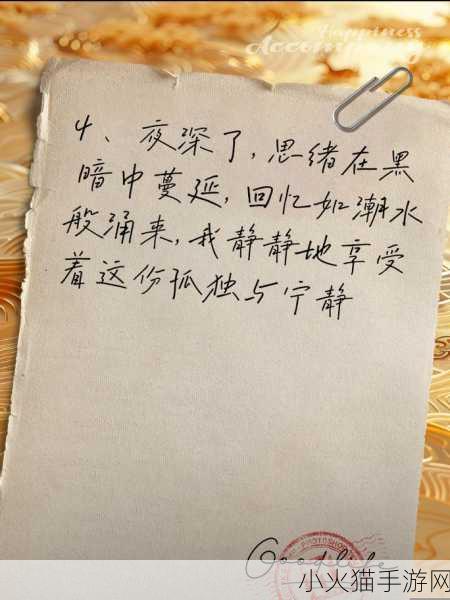 Happiness
Accompany
4、夜深了,思绪在黑
暗中蔓延,回忆如潮水
般涌来,我静静地享受
着这份孤独与宁静
Good life
PHOTOSHOP
小火猫手游网